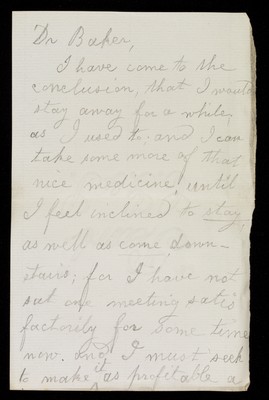 Dr Baker,
I have come to the
conclusion, that I would
stay away for a while,
as I used to. and I can
take some more of that
nice medicine, until
I feel inclined to stay,
as well as come down-
stairs; for I have not
sat one meeting satis
factorily for some time
now. and, I must seek
to make it as profitable a